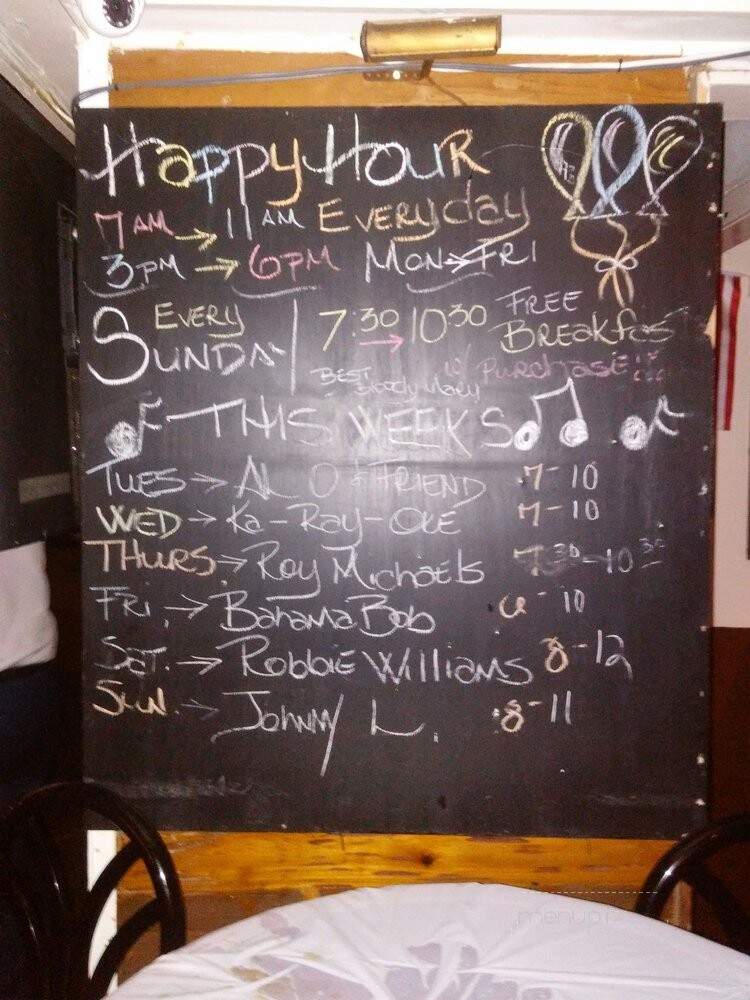 Happy Hour
7 AM → 11 AM Everyday
3 PM → 6 PM Mon → Fri
Every Sunday 7:30 → 10:30 Free Breakfast
w/ Purchase!!
Best Bloody Mary
This Week's
Tues → Al O & Friend 7-10
Wed → Ka-Ray-Oke 7-10
Thurs → Roy Michaels 7 30 - 10 30
Fri. → Bahama Bob 6-10
Sat. → Robbie Williams 8-12
Sun. → Johnny L. 8-11
menupix